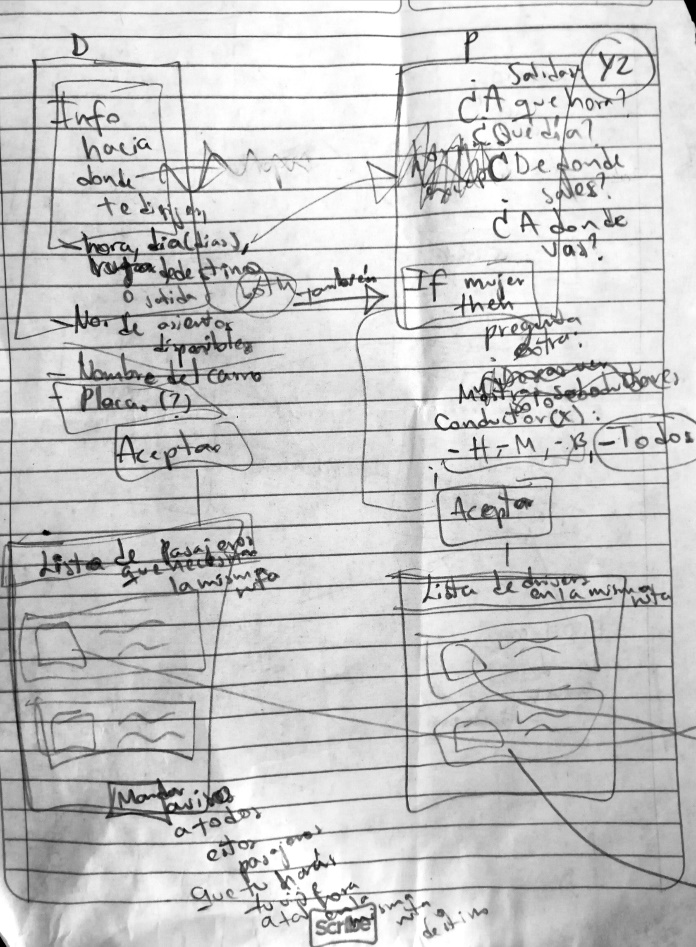 D
Info
hacia
donde
te diriges,
hora, dia (dias),
de destino
o salida
Both
también
No. de asientos
disponibles
- Nombre del carro
- Placa. (?)
Aceptar
Lista de pasajeros
que necesitan
la misma ruta
Mandar
aviso
a todos
estos
pasajeros
que tu harás
tu viaje para
misma
ruta
destino
P
Salida:
Y2
¿A que hora?
¿Qué día?
¿De donde
sales?
¿A donde
vas?
If mujer
then
pregunta
extra:
Conductor(x):
- H, - M, - B, - Todos
Aceptar
Lista de drivers
en la misma
ruta
Scribe